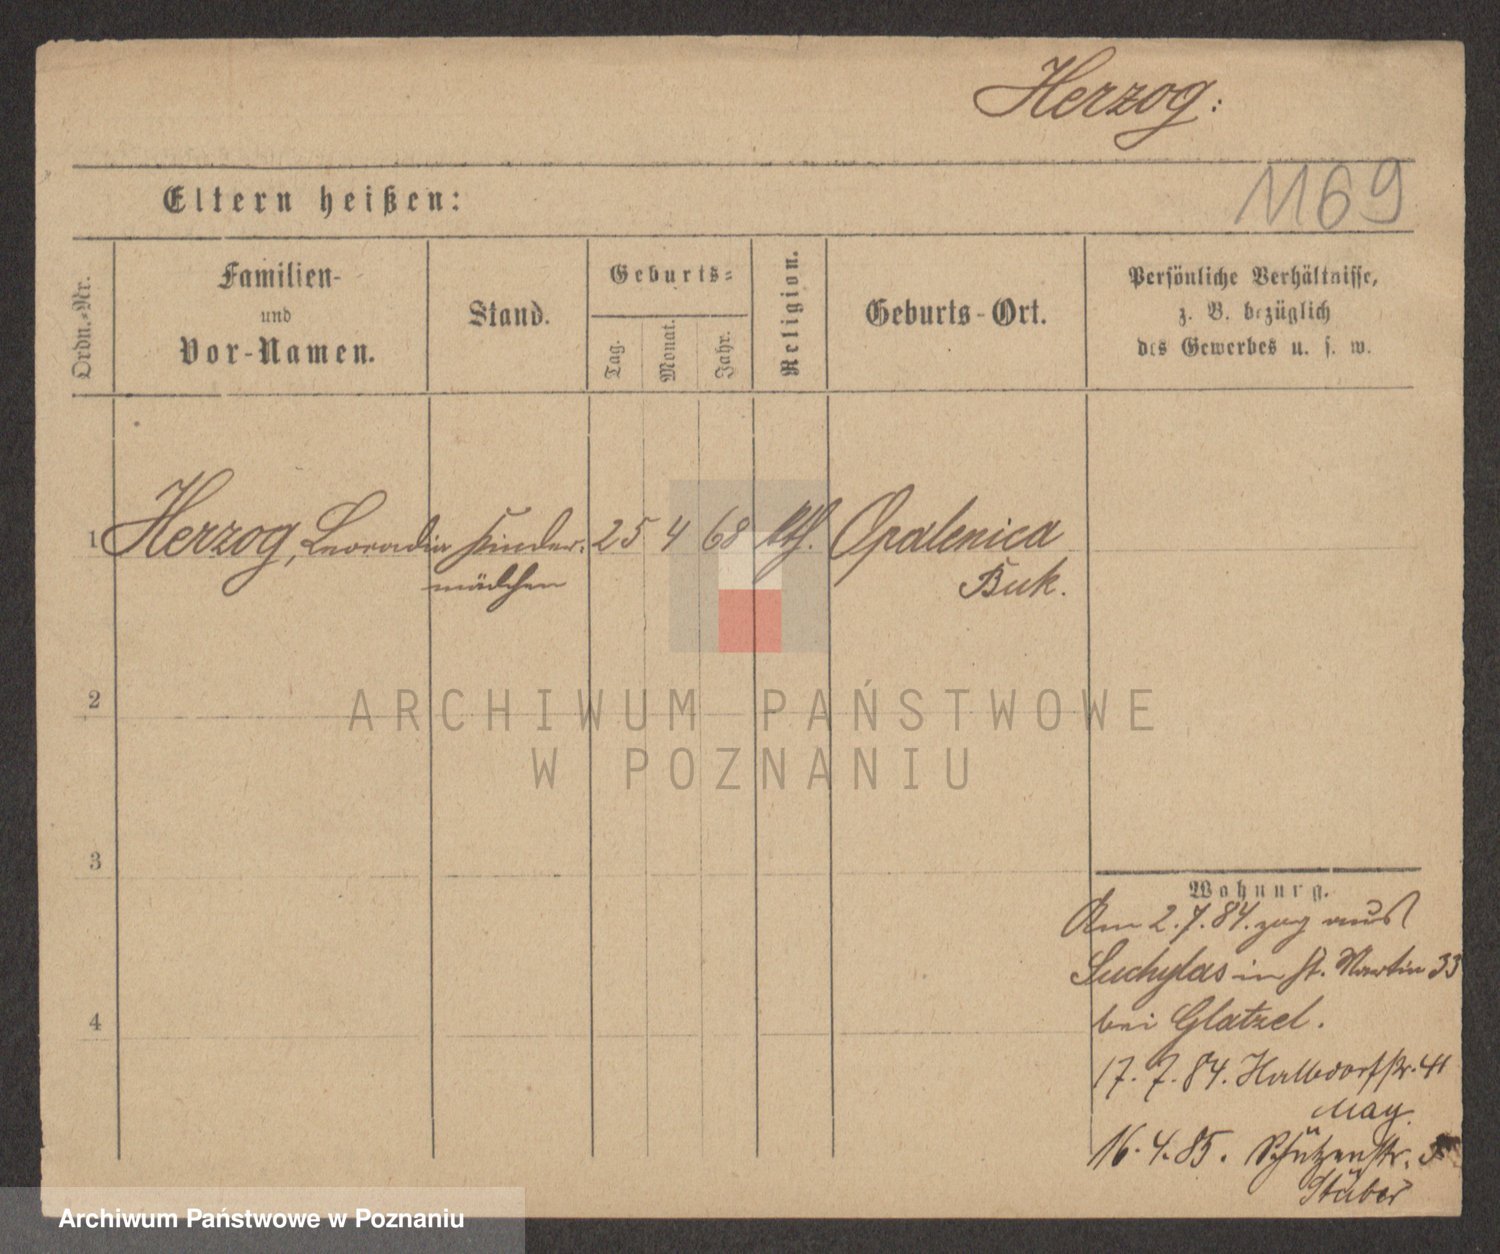 Herzog:
1169
Eltern heißen:
Ordn.-Nr.
Familien-
und
Vor-Namen.
Stand.
Geburts-
Tag.
Monat.
Jahr.
Religion.
Geburts-Ort.
Persönliche Verhältnisse,
z. B. bezüglich
des Gewerbes u. s. w.
1 Herzog, Leocadia Kinder- 25 4 68 kth. Opalenica
mädchen Buk.
2
3
4
ARCHIWUM PAŃSTWOWE
W POZNANIU
Wohnung.
Am 2.7.84. zog aus
Suchylas in St. Martin 33
bei Glatzel.
17. 7. 84. Halbdorfstr. 41
May.
16. 4. 85. Schützenstr.
Stüber
Archiwum Państwowe w Poznaniu